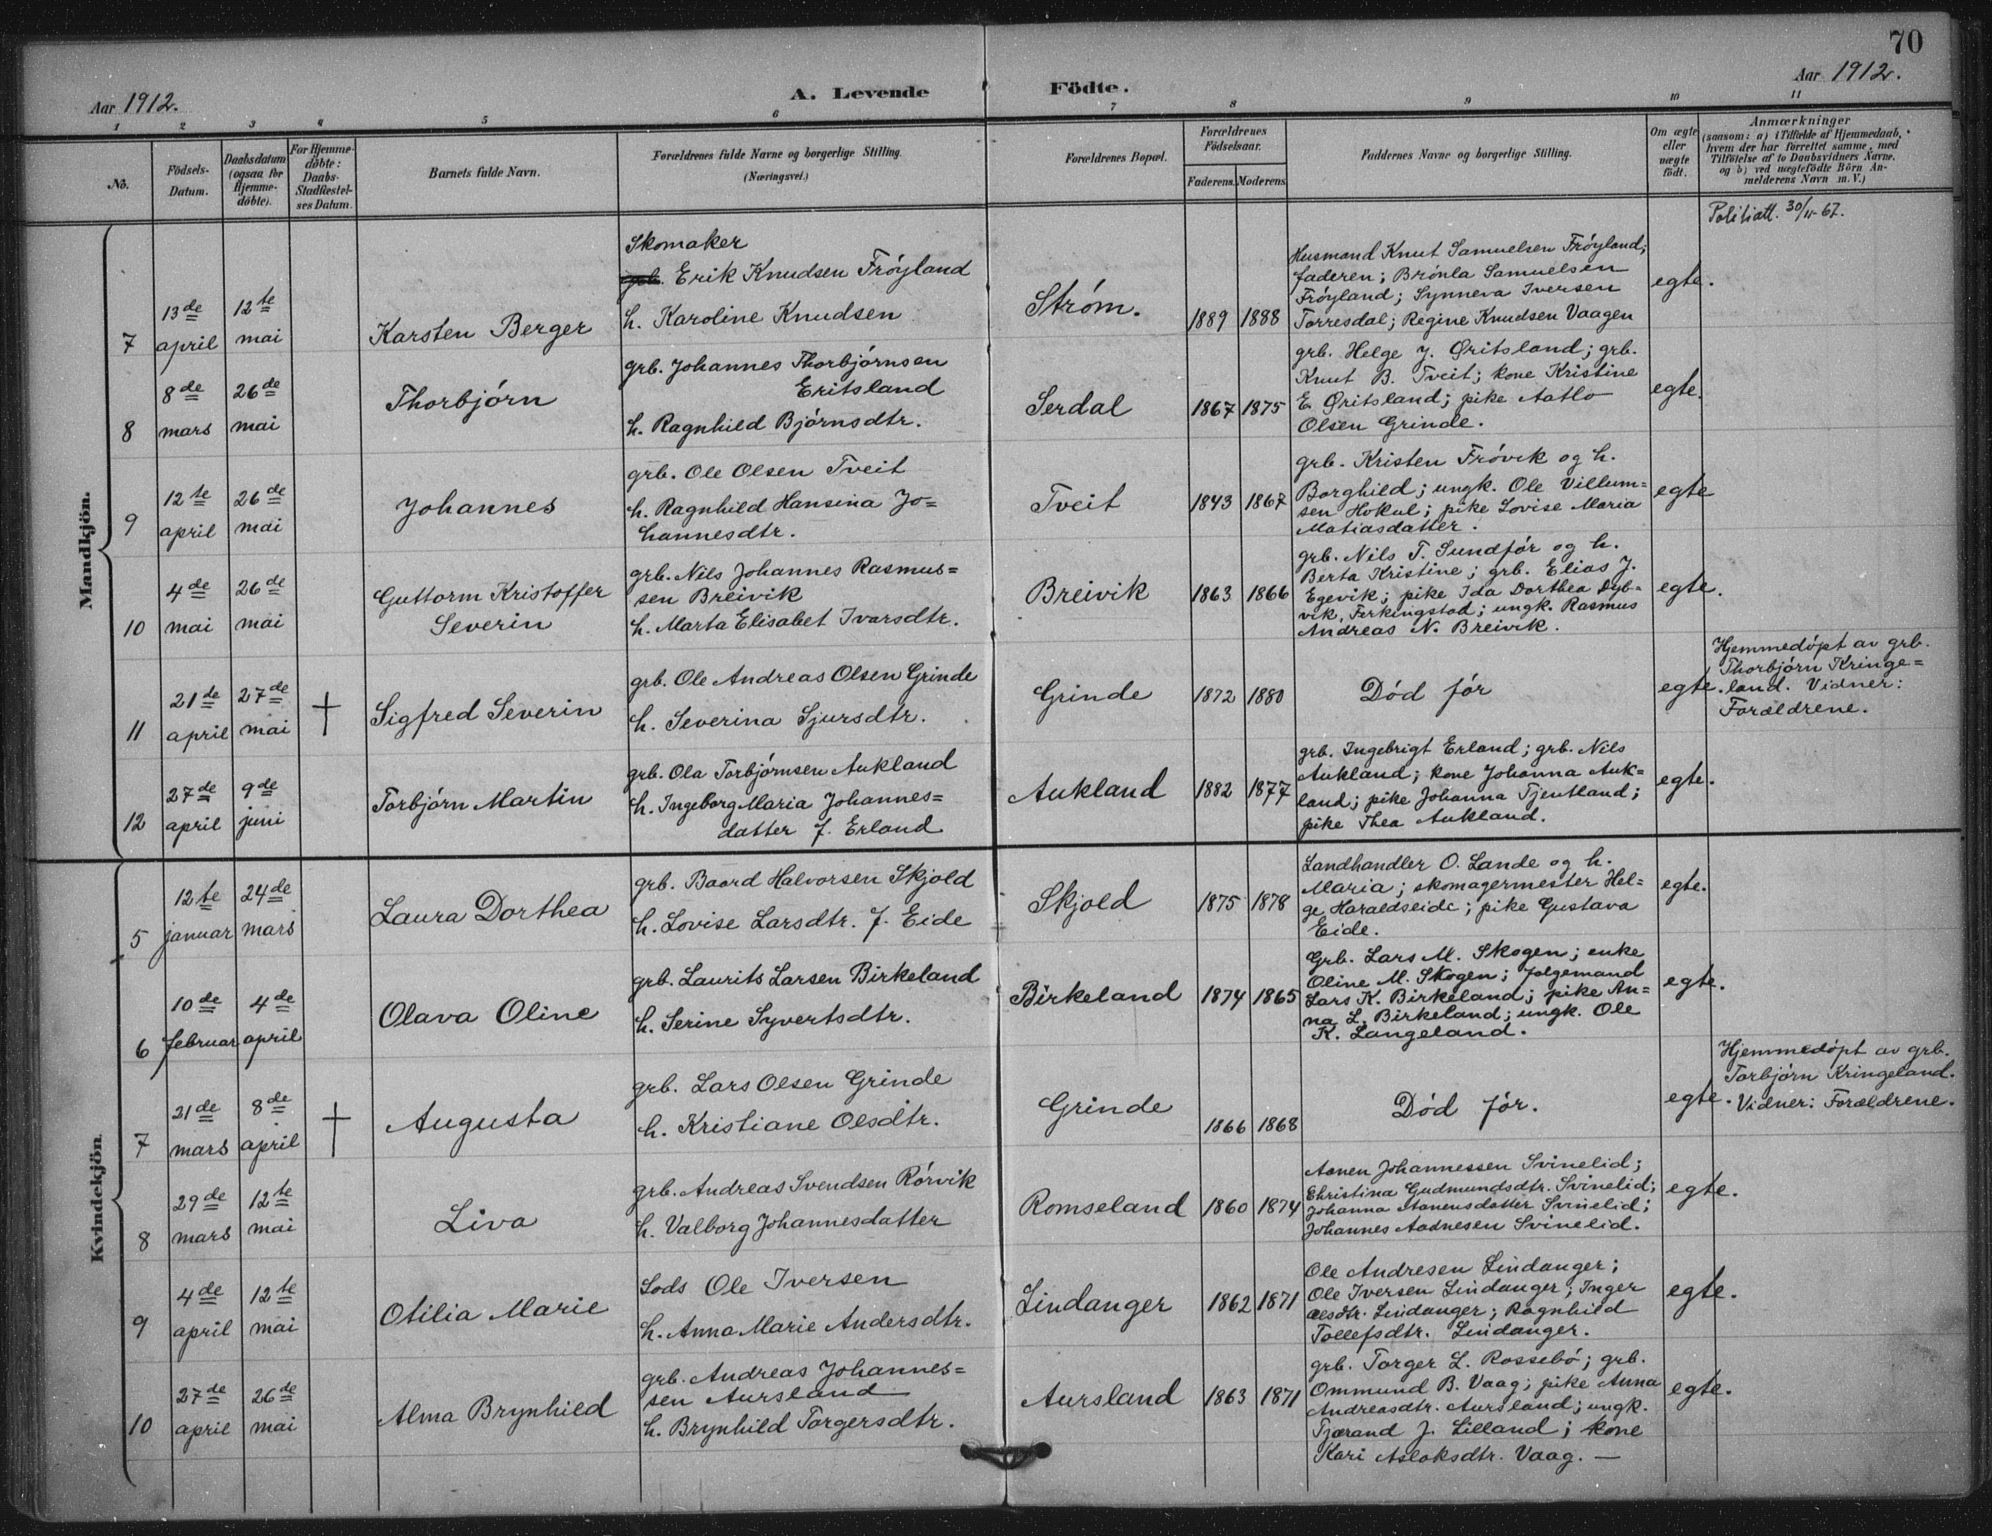 70
Aar 1912.
A. Levende Födte.
Aar 1912.
1 2 3 4 5 6 7 8 9 10 11
No.
Födsels-
Datum.
Daabsdatum
(ogsaa for
Hjemme-
döbte).
For Hjemme-
döbte:
Daabs-
Stadfæstel-
ses Datum.
Barnets fulde Navn.
Forældrenes fulde Navne og borgerlige Stilling.
(Næringsvei.)
Forældrenes Bopæl.
Forældrenes
Födselsaar.
Faderens. Moderens.
Faddernes Navne og borgerlige Stilling.
Om ægte
eller
uægte
født.
Anmærkninger
(saasom: a) i Tilfælde af Hjemmedaab,
hvem der har forrettet samme, med
Tilföielse af to Daabsvidners Navne,
og b) ved uægtefödte Börn An-
melderens Navn m. V.)
Mandkjön.
7
13de
april
12te
mai
Karsten Berger
Skomaker
grb. Erik Knudsen Frøyland
h. Karoline Knudsen
Strøm.
1889 1888
Husmand Knut Samuelsen Frøyland;
faderen; Brønla Samuelsen
Frøyland; Synneva Iversen
Torresdal; Regine Knudsen Vaagen
egte.
Politiatt. 30/11-67.
8
8de
mars
26de
mai
Thorbjørn
grb. Johannes Thorbjørnsen
Eritsland
h. Ragnhild Bjørnsdtr.
Serdal
1867 1875
grb. Helge J. Øritsland; grb.
Knut B. Tveit; kone Kristine
E. Øritsland; pike Aatlo
Olsen Grinde.
egte.
9
12te
april
26de
mai
Johannes
grb. Ole Olsen Tveit
h. Ragnhild Hansina Jo=
hannesdtr.
Tveit
1843 1867
grb. Kristen Frøvik og h.
Borghild; ungk. Ole Villum=
sen Hokul; pike Lovise Maria
Matiasdatter.
egte
10
4de
mai
26de
mai
Guttorm Kristoffer
Severin
grb. Nils Johannes Rasmus=
sen Breivik
h. Marta Elisabet Ivarsdtr.
Breivik
1863 1866
grb. Nils T. Sundfør og h.
Berta Kristine; grb. Elias J.
Egevik; pike Ida Dorthea Dyb=
vik, Ferkingstad; ungk. Rasmus
Andreas N. Breivik.
egte.
11
21de
april
27de
mai
†
Sigfred Severin
grb. Ole Andreas Olsen Grinde
h. Severina Sjursdtr.
Grinde
1872 1880
Død før
egte.
Hjemmedøpt av grb.
Thorbjørn Kringe=
land. Vidner:
Forældrene.
12
27de
april
9de
juni
Torbjørn Martin
grb. Ola Torbjørnsen Aukland
h. Ingeborg Maria Johannes=
datter f. Erland
Aukland
1882 1877
grb. Ingebrigt Erland; grb. Nils
Aukland; kone Johanna Auk=
land; pike Johanna Tjentland;
pike Thea Aukland.
egte.
Kvindekjön.
5
12te
januar
24de
mars
Laura Dorthea
grb. Baard Halvorsen Skjold
h. Lovise Larsdtr. f. Eide
Skjold
1875 1878
Landhandler O. Lande og h.
Maria; skomagermester Hel=
ge Haraldseide; pike Gustava
Eide.
egte.
6
10de
februar
4de
april
Olava Oline
grb. Laurits Larsen Birkeland
h. Serine Syvertsdtr.
Birkeland
1874 1865
Grb. Lars M. Skogen; enke
Oline M. Skogen; følgemand
Lars K. Birkeland; pike An=
na L. Birkeland; ungk. Ole
K. Langeland.
egte.
7
21de
mars
8de
april
†
Augusta
grb. Lars Olsen Grinde
h. Kristiane Olsdtr.
Grinde
1866 1868
Død før.
egte.
Hjemmedøpt av grb.
Torbjørn Kringeland.
Vidner: Forældrene.
8
29de
mars
12te
mai
Liva
grb. Andreas Svendsen Rørvik
h. Valborg Johannesdatter
Romseland
1860 1874
Aanen Johannessen Svinelid;
Christina Gudmundsdtr. Svinelid;
Johanna Aanensdatter Svinelid;
Johannes Aadnesen Svinelid.
egte.
9
4de
april
12te
mai
Otilia Marie
Lods Ole Iversen
h. Anna Marie Andersdtr.
Lindanger
1862 1871
Ole Andresen Lindanger;
Ole Iversen Lindanger; Inger
Olsdtr. Lindanger; Ragnhild
Tollefsdtr. Lindanger.
egte.
10
27de
april
26de
mai
Alma Brynhild
grb. Andreas Johannes=
sen Aursland
h. Brynhild Torgersdtr.
Aursland
1863 1871
grb. Torger L. Rossebø; grb.
Ommund B. Vaag; pike Anna
Andreasdtr. Aursland; ungk.
Tjærand J. Lilland; kone
Kari Aslaksdtr. Vaag. —
egte.